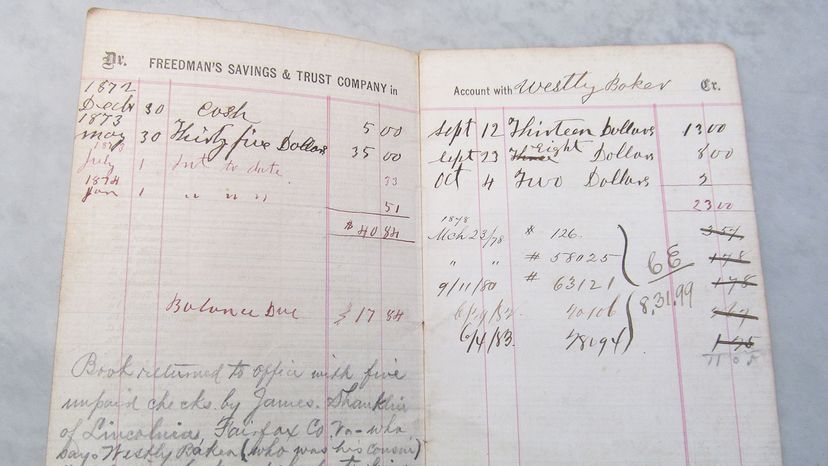 Dr. FREEDMAN'S SAVINGS & TRUST COMPANY in
1872
Decbr 30 cash 5 00
1873
May 30 Thirty five Dollars 35 00
1873
July 1 Int to date 33
1874
Jan 1 " " " 51
$ 40 84
Balance Due $ 17 84
Book returned to office with five
unpaid checks by James. Shanklin
of Lincolnia, Fairfax Co. Va - who
says Westly Baker (who was his cousin)
Account with Westly Baker Cr.
Sept 12 Thirteen Dollars 13 00
Sept 23 Three Eight Dollars 8 00
Oct 4 Two Dollars 2
23 00
1878
Mch 23/78 # 126
" " # 58025
9/11/80 # 63121
6/4/83
8,31.99